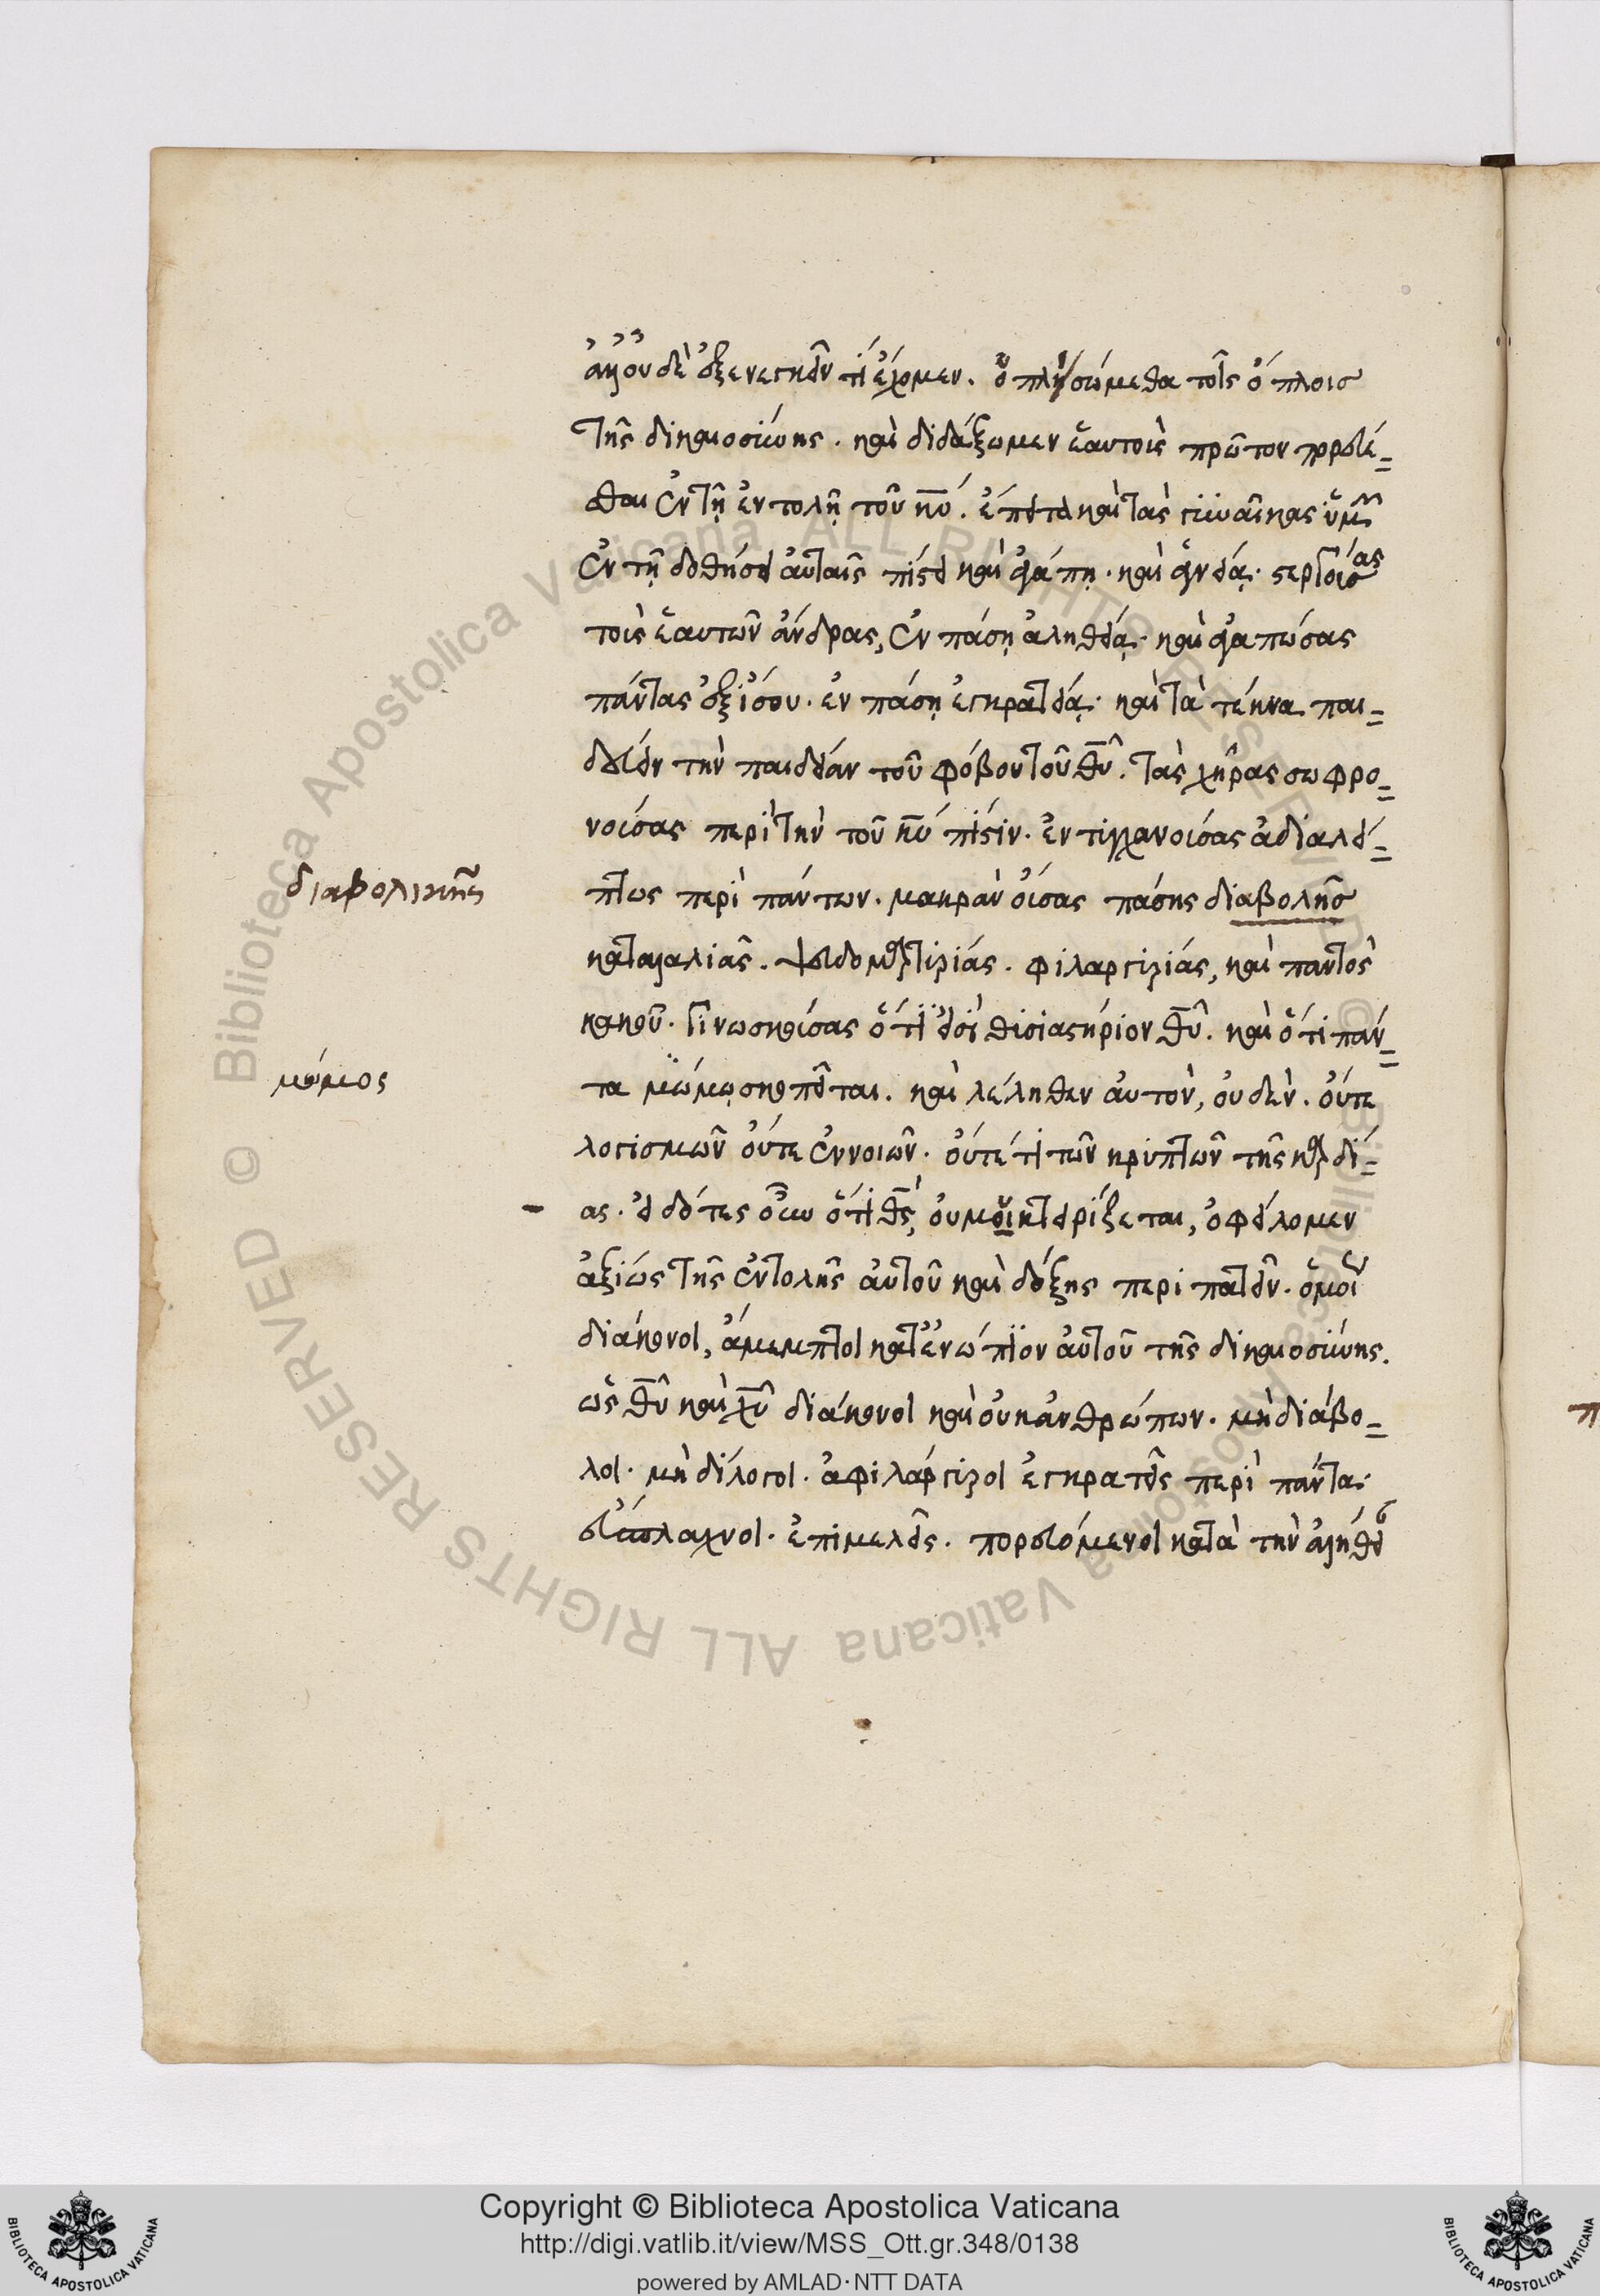 ἀλλ' οὐδὲ ἐξενεγκεῖν τί ἔχομεν. ὁπλησώμεθα τοῖς ὅπλοισ
τῆς δικαιοσύνης. καὶ διδάξωμεν ἑαυτοὺς πρῶτον πορεύε=
σθαι ἐν τῇ ἐντολῇ τοῦ κυ. ἔπειτα καὶ τὰς γυναῖκας ὑμῶν
ἐν τῇ δοθείσει αὐταῖς πίστει καὶ ἀγάπῃ. καὶ ἁγνείᾳ. στεργούσας
τοὺς ἑαυτῶν ἄνδρας, ἐν πάσῃ ἀληθείᾳ. καὶ ἀγαπώσας
πάντας ἐξίσου. ἐν πάσῃ ἐγκρατείᾳ. καὶ τὰ τέκνα παι=
δεύειν τὴν παιδείαν τοῦ φόβου τοῦ θυ. τὰς χήρας σωφρο=
νούσας περὶ τὴν τοῦ κυ πίστιν. ἐντυγχανούσας ἀδιαλεί=
πτως περὶ πάντων. μακρὰν οὔσας πάσης διαβολῆσ
διαβολικῆς
καταλαλιᾶς. ψευδομαρτυρίας. φιλαργυρίας, καὶ παντὸς
κακοῦ. γινωσκούσας ὅτι εἰσὶ θυσιαστήριον θυ. καὶ ὅτι πάν=
τα μώμῳ σκοπεῖται. καὶ λέληθεν αὐτὸν, οὐδὲν. οὔτε
μώμος
λογισμῶν οὔτε ἐννοιῶν. οὔτέ τι τῶν κρυπτῶν τῆς καρδί=
ας. εἰδότες οὖν ὅτι θς, οὐ μυκτειρίζεται, ὀφείλομεν
ἀξίως τῆς ἐντολῆς αὐτοῦ καὶ δόξης περιπατεῖν. ὁμοί
διάκονοι, ἄμεμπτοι κατενώπιον αὐτοῦ τῆς δικαιοσύνης.
ὡς θυ καὶ χυ διάκονοι καὶ οὐκ ἀνθρώπων. μὴ διάβο=
λοι. μὴ δίλογοι. ἀφιλάργυροι ἐγκρατεῖς περὶ πάντα.
εὔσπλαχνοι. ἐπιμελεῖς. πορευόμενοι κατὰ τὴν ἀλήθει
Copyright © Biblioteca Apostolica Vaticana
http://digi.vatlib.it/view/MSS_Ott.gr.348/0138
powered by AMLAD·NTT DATA
BIBLIOTECA APOSTOLICA VATICANA
BIBLIOTECA APOSTOLICA VATICANA
© Biblioteca Apostolica Vaticana ALL RIGHTS RESERVED
© Biblioteca Apostolica Vaticana ALL RIGHTS RESERVED